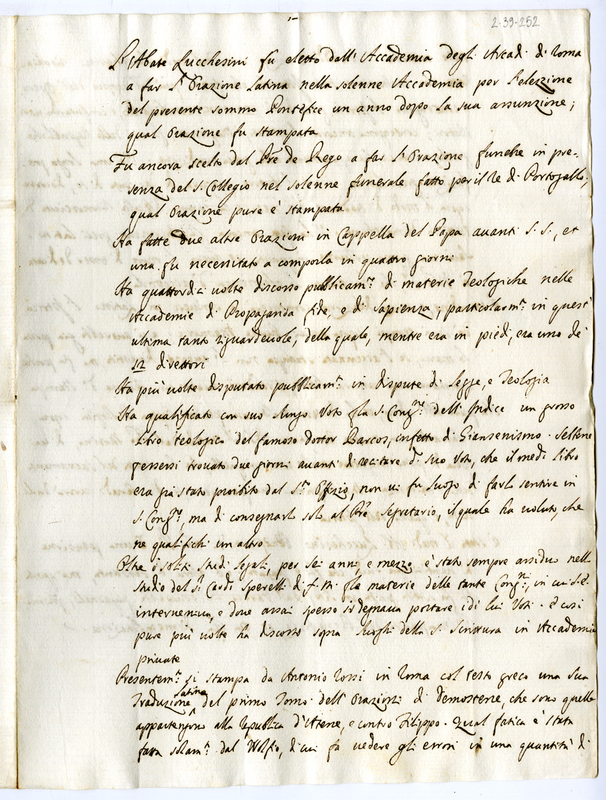 2-39-252
L'Abate Lucchesini fu eletto dall'Accademia degli Arcad. di Roma
a far l'Orazione Latina nella solenne Accademia per l'elezzione
del presente sommo Pontefice un anno dopo la sua assunzione;
qual Orazione fu stampata
Fu ancora scelto dal Pre de Rego a far l'Orazione funebre in pre-
senza del S. Collegio nel solenne funerale fatto per il Re di Portogallo,
qual Orazione pure è stampata
Ha fatte due altre Orazioni in Cappella del Papa avanti S. S., et
una fu necessitato a comporla in quattro giorni
Ha quattordici volte discorso pubblicam.te di materie Teologiche nelle
Accademie di Propaganda fide, e di Sapienza; particolarm.te in quest'
ultima tanto riguardevole, della quale, mentre era in piedi, era uno de'
12 direttori
Ha più volte disputato pubblicam.te in dispute di Legge, e Teologia
Ha qualificato con suo lungo Voto p la S. Cong.ne dell'Indice un grosso
libro teologico del famoso dottor Barcos, infetto di Giansenismo. Sebbene
essersi trovato due giorni avanti di recitare d.o suo Voto, che il med.o libro
era già stato proibito dal S.to Offizio, non vi fu luogo di farlo sentire in
S. Cong.ne, ma di consegnarlo solo al Pre Segretario, il quale ha voluto, che
ne qualifichi un altro
Oltre i soliti studi legali, per sei anni, e mezzo è stato sempre assiduo nello
studio del S.r Card. Sperelli di f. m. p le materie delle tante Cong.ni, in cui s'è
interveniva, e dove assai spesso si degnava portare i di lui Voti. E così
pure più volte ha discorso sopra luoghi della S. Scrittura in Accademie
private
Presentem.te si stampa da Antonio Rossi in Roma col testo greco una sua
Traduzione latina del primo Tomo dell'Orazioni di Demostene, che sono quelle
appartengono alla Republica d'Atene, e contro Filippo. Qual fatica è stata
fatta solam.te dal Wolfio, di cui fa vedere gli errori in una quantità di